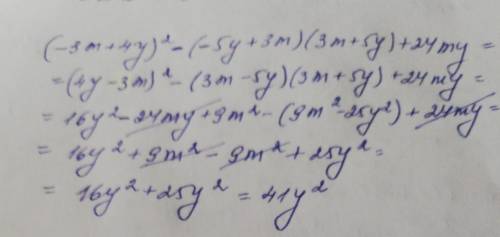 (-3m+4y)² - (-5y+3m)(3m+5y)+24my =
=(4y-3m)² - (3m-5y)(3m+5y)+24my =
= 16y² - 24my + 9m² - (9m² - 25y²) + 24my =
= 16y² + 9m² - 9m² + 25y² =
= 16y² + 25y² = 41y²